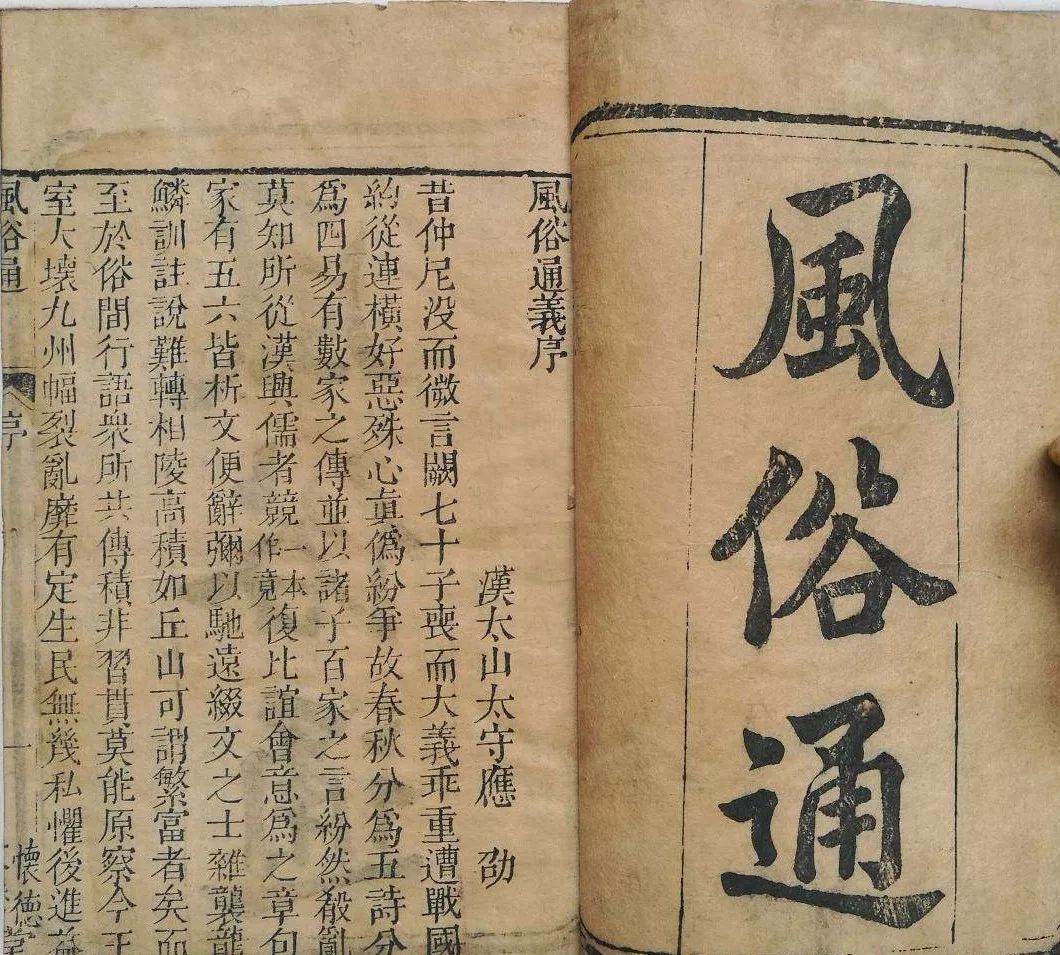 風俗通
風俗通義序
漢太山太守應 劭
昔仲尼没而微言闕七十子喪而大義乖重遭戰國
約從連橫好惡殊心眞僞紛爭故春秋分爲五詩分
爲四易有數家之傳並以諸子百家之言紛然殽亂
莫知所從漢興儒者競一本作竟復比誼會意爲之章句
家有五六皆析文便辭彌以馳遠綴文之士雜襲龍
鱗訓註說難轉相陵高積如丘山可謂繁富者矣而
至於俗間行語衆所共傳積非習貫莫能原察今王
室大壞九州幅裂亂靡有定生民無幾私懼後進益
風俗通 序 一 懷德堂